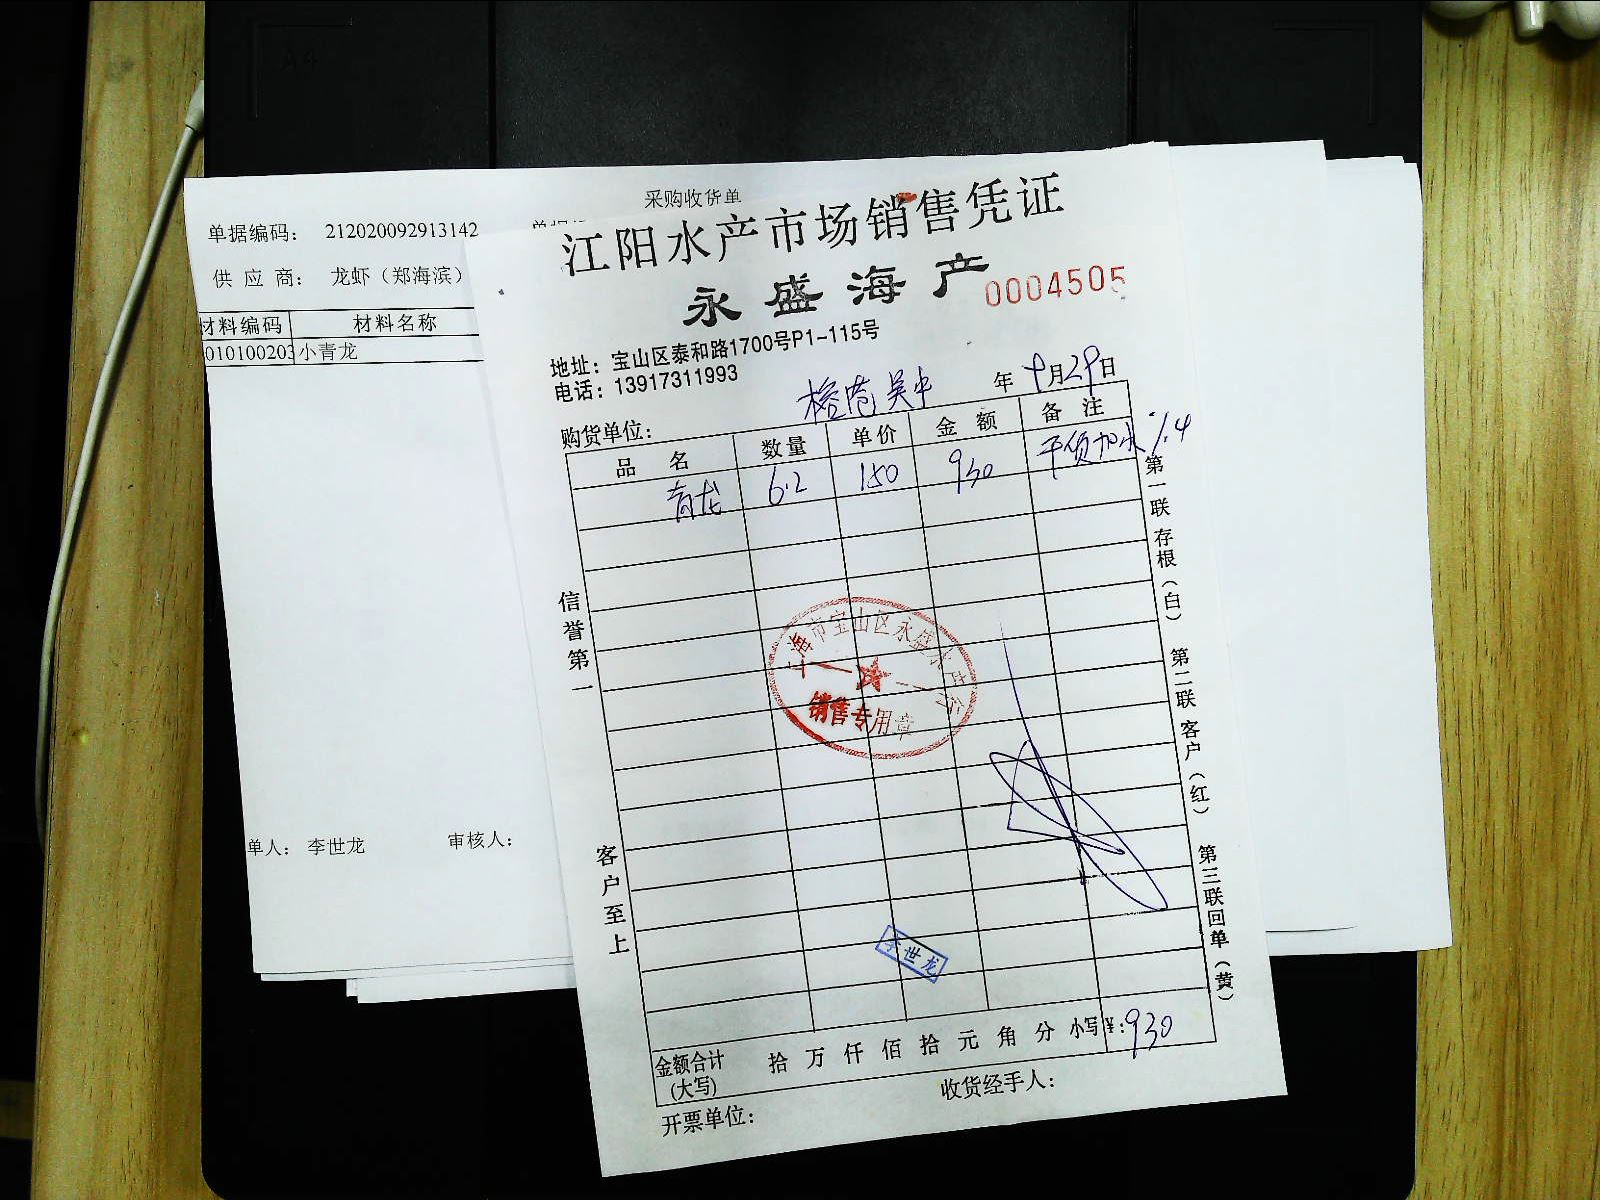 采购收货单
单据编码： 212020092913142
供 应 商： 龙虾（郑海滨）
材料编码 材料名称
010100203 小青龙
单人： 李世龙 审核人：
江阳水产市场销售凭证
永盛海产
0004505
地址：宝山区泰和路1700号P1-115号
电话：13917311993
年 9月29日
购货单位：
品 名 数量 单价 金 额 备 注
青龙 6.2 150 930
信誉第一
客户至上
第一联 存根（白） 第二联 客户（红） 第三联 回单（黄）
上海市宝山区永盛水
销售专用章
李世龙
金额合计（大写） 拾 万 仟 佰 拾 元 角 分 小写¥：930
开票单位： 收货经手人：